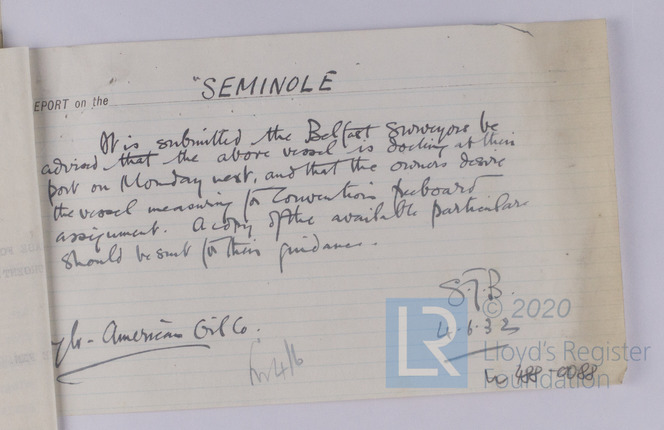 EPORT on the "SEMINOLE"
It is submitted the Belfast Surveyors be
advised that the above vessel is docking at their
port on Monday next, and that the owners desire
the vessel measuring for Convention freeboard
assignment. A copy of the available particulars
should be sent for their guidance.
S.T.B.
4.6.32
glo-American Oil Co.
4/6
LR © 2020
Lloyd's Register
Foundation
488-0088